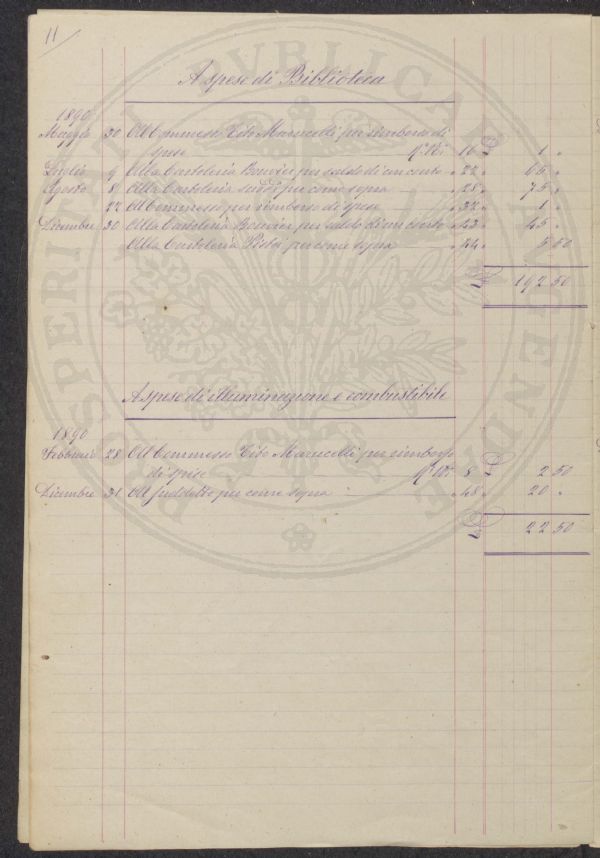 11
A spese di Biblioteca
1890
Maggio 30 Al Commesso Tito Marucelli per rimborso di
spese M.to N.o 16 £ 1 "
Luglio 9 Alla Cartoleria Bouvier per saldo di un conto " 22 " 65 "
Agosto 8 Alla Cartoleria sudd. per come sopra " 28 " 75 "
22 Al Commesso per rimborso di spese " 32 " 1 "
Dicembre 30 Alla Cartoleria Bouvier per saldo di un conto " 43 " 45 "
Alla Cartoleria per come sopra " 44 " 5 50
£ 192 50
A spese di illuminazione e combustibile
1890
Febbraio 28 Al Commesso Tito Marucelli per rimborso
di spese M.to N.o 8 £ 2 50
Dicembre 31 Al suddetto per come sopra " 48 " 20 "
£ 22 50
PROSPERITATI PVBLICAE AVGENDAE